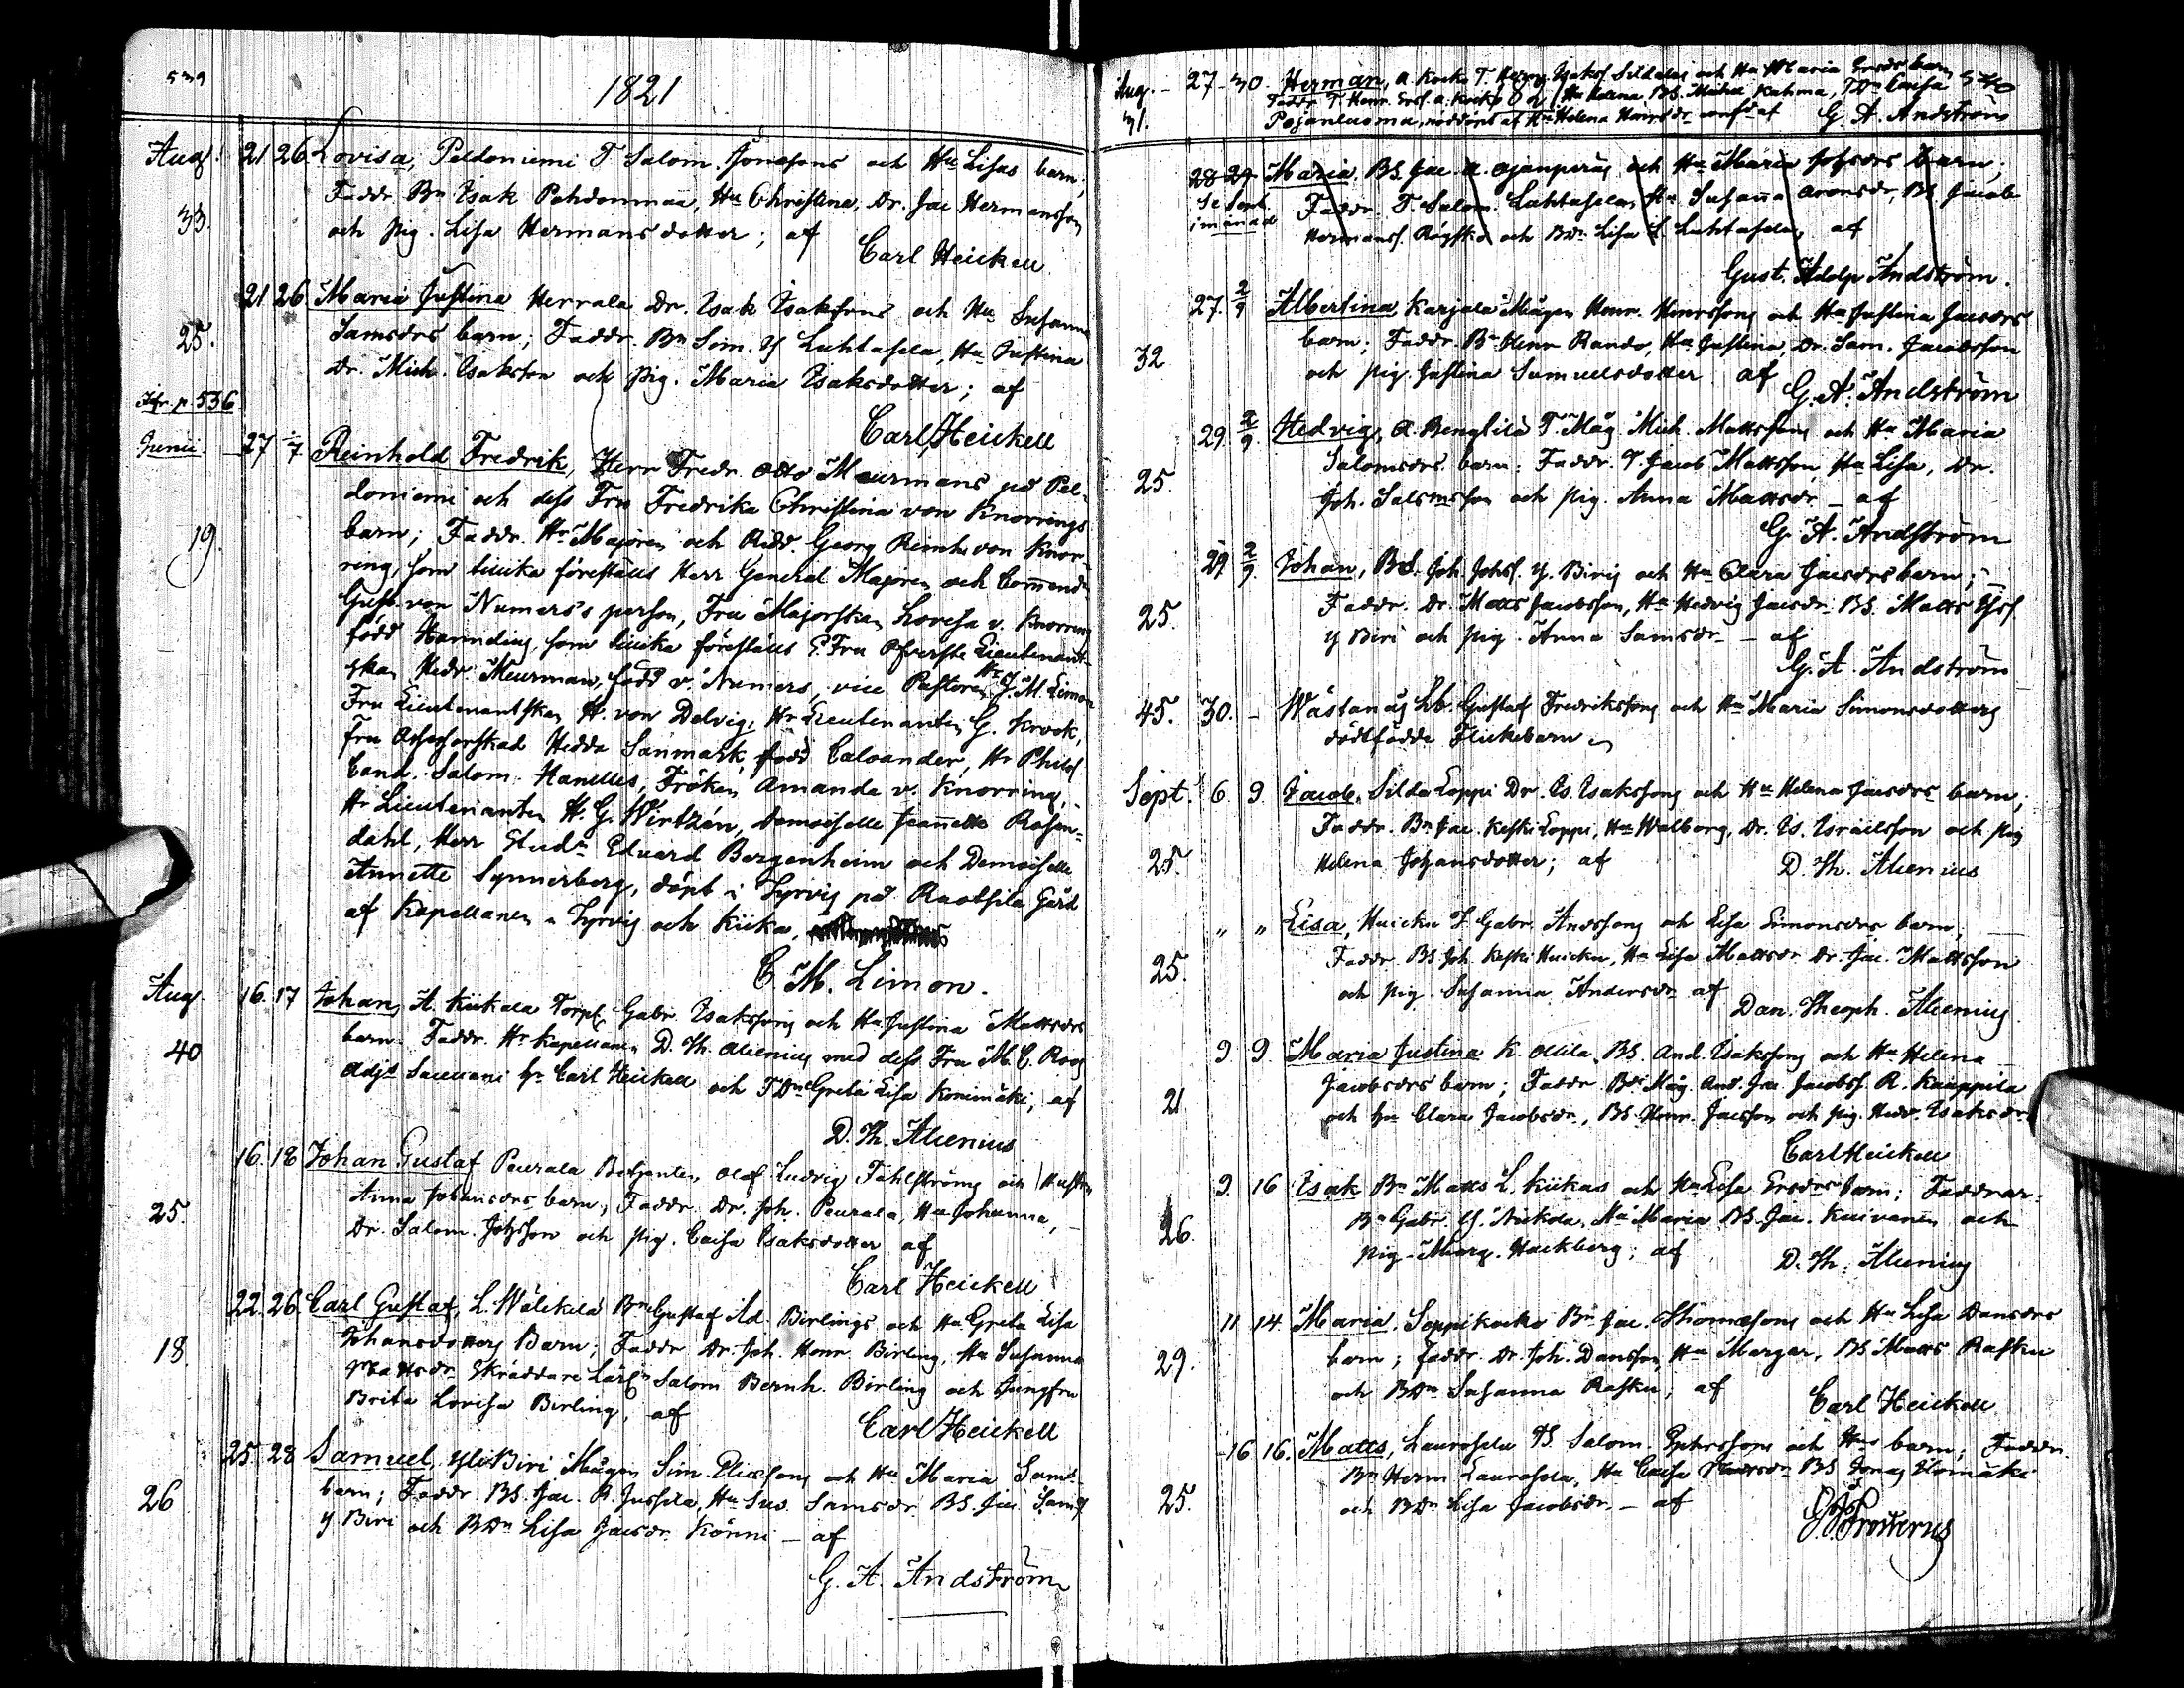 539
1821
Aug. 21 26 Lovisa, Peldoniemi T Salom. Jonæsons och Hu Lisas barn;
Faddr. Bn Isak Pahdonmaa, Hu Christina, Dr. Jac Hermansson
33. och pig. Lisa Hermansdotter; af
Carl Heickell
21 26 Maria Justina Herrala Dr. Isak Isaksons och Hu Susanna
25. Samsdrs barn; Faddr. Bn Sim. Y Luhtasela, Hu Justina
Dr. Mich. Isakson och pig. Maria Isaksdotter; af
Jfr p. 536
Carl Heickell
Junii. 27 7 Reinhold Fredrik, Herr Fredr. Otto Meurmans på Pel-
doniemi och dess Fru Fredrika Christina von Knorrings
19. barn; Faddr. Hr Majoren och Ridd. Georg Reinh. von Knor-
ring, som tillika föreställs Herr General Majoren och Commend.
Gust. von Numers's person, Fru Majorskan Lovisa v. Knorring
född Harnding, som tillika föreställs Fru Öfverste Lieutenant-
skan Hedv. Meurman, född v. Numers, vice Pastoren Hr J. M. Limon
Fru Lieutenantskan H. von Delvig, Hr Lieutenanten G. Krook,
Fru Assessorskan Hedda Sanmark, född Caloander, Hr Philos.
Cand. Salom. Hanelles, Fröken Amanda v. Knorring,
Hr Lieutenanten H. G. Wirtzén, Demoiselle Jeannette Rosen-
dahl, Herr Studn Eduard Bergenheim och Demoiselle
Annette Synnerberg, döpt i Tyrvis på Raotsila Gård
af Kapellanen i Tyrvis och Kiika,
C. M. Limon.
Aug. 16. 17 Johan, A. Kiikala Torp. Gabr. Isakssons och Hu Justina Mattsdrs
40 barn. Faddr. Hr Kapellanen D. Th. Alcenius med dess Fru M. C. Roos
Adjt Sacellani Hr Carl Heickell och TDn Greta Lisa Konimäki, af
D. Th. Alcenius
16. 18 Johan Gustaf Peurala Betjenten Olof Ludvig Fahlströms och Hustru
Anna Johansdrs barn, Faddr. Dr. Joh. Peurala, Hu Johanna,
25. Dr. Salom. Johsson och pig. Caisa Isaksdotter af
Carl Heickell
22. 26. Carl Gustaf, L. Wälikilä Bn Gustaf Ad. Birlings och Hu Greta Lisa
18. Johansdotters Barn; Faddr. Dr. Joh. Henr. Birling, Hu Susanna
Mattsdr. Skräddare Lärl. Salom Bernh. Birling och Jungfru
Brita Lovisa Birling, af
Carl Heickell
25. 28 Samuel, YliBiri Mågen Sim. Eliæsons och Hu Maria Sams.
26 barn; Faddr. BS. Jac. A. Jussila, Hu Sus. Samsdr. BS. Jac. Sams.
Y Biri och BDn Lisa Jacsdr. Könni – af
G. A. Andström
540
Aug. 27 30. Herman, A. Kocko T. Herm. Isaks. Sildalas och Hu Maria Ersdrs barn
Faddr. T. Henr. Ers. A. Kocko Hu Helena BS. Michel Kahma, TDn Caisa
31. Pojanluoma, nöddöpt af Hu Helena Henrsdr conf. af G. A. Andström
28 29 Maria BS. Jac. A. Ojanperäs och Hu Maria Johsdrs barn;
Se Sept. Faddr. T. Salom. Luhtasela, Hu Susanna Aronsdr, BS. Jacob
i månad Hermans. Röyskö och BDn Lisa L. Luhtasela, af
Gust. Adolp Andström.
27. 2/9 Albertina, Karjala Mågen Henr. Henrssons och Hu Justina Jacsdrs
32 barn; Faddr. Bn Henr Rando, Hu Justina, Dr. Sam. Jacobsson
och pig. Justina Samuelsdotter af
G. A. Andström
29. 2/9 Hedvig, A. Bengtilä T. Måg Mich. Mattssons och Hu Maria
25. Salomsdrs barn: Faddr. T. Jacob Mattsson, Hu Lisa, Dr.
Joh. Salomsson och pig. Anna Mattsdr – af
G. A. Andström
29 2/9 Johan, BS. Joh. Johs. Y. Biris och Hu Clara Jacsdrs barn;
25. Faddr. Dr. Matts Jacobsson, Hu Hedvig Jacsdr. BS. Matts Johs.
Y Biri och pig. Anna Samsdr – af
G. A. Andström
45. 30. – Wästanås Lb. Gustaf Fredrikssons och Hu Maria Simonsdotters
dödfödda Flickebarn
Sept. 6 9 Jacob, Silda Loppi Dr. Is. Isakssons och Hu Helena Jacsdrs barn;
Faddr. Bn Jac. Keski Loppi, Hu Walborg, Dr. Is. Israelsson och pig
25. Helena Johansdotter; af D. Th. Alcenius
" " Lisa, Huicku T Gabr. Anderssons och Lisa Simonsdrs barn;
25. Faddr. BS Joh. Keski Huicku, Hu Lisa Mattsdr. Dr. Jac. Mattsson
och pig. Susanna Andersdr. af
Dan. Theoph. Alcenius
9 9. Maria Justina K. Ollila, BS. And. Isakssons och Hu Helena
Jacobsdrs barn; Faddr. Bds Måg. And. Jac Jacobss. R. Kauppila
21 och Hu Clara Jacobsdr., BS. Henr. Jacsson och pig. Hedv. Isaksdr
Carl Heickell
9. 16 Isak Bn Matts L. Kiikas och Hu Lisa Ersdrs barn; Faddrar:
26. Bn Gabr. Y. Nickola, Hu Maria BS. Jac. Kuivanen och
pig. Marg. Hackberg; af D. Th. Alcenius
11 14. Maria, Soppikocko Bn Jac. Thomæsons och Hu Lisa Dansdrs
29. barn; Faddr. Dr. Joh. Dansson, Hu Margar, BS Matts Rasku
och BDn Susanna Rasku, af
Carl Heickell
16 16. Matts, Laurosela BS. Salom. Gabrssons och Hus barn; Faddr.
Bn Herm Laurosela, Hu Caisa Mattsdr. BS Jonas Homäki
25. och BDn Lisa Jacobsdr. – af
Frosterus